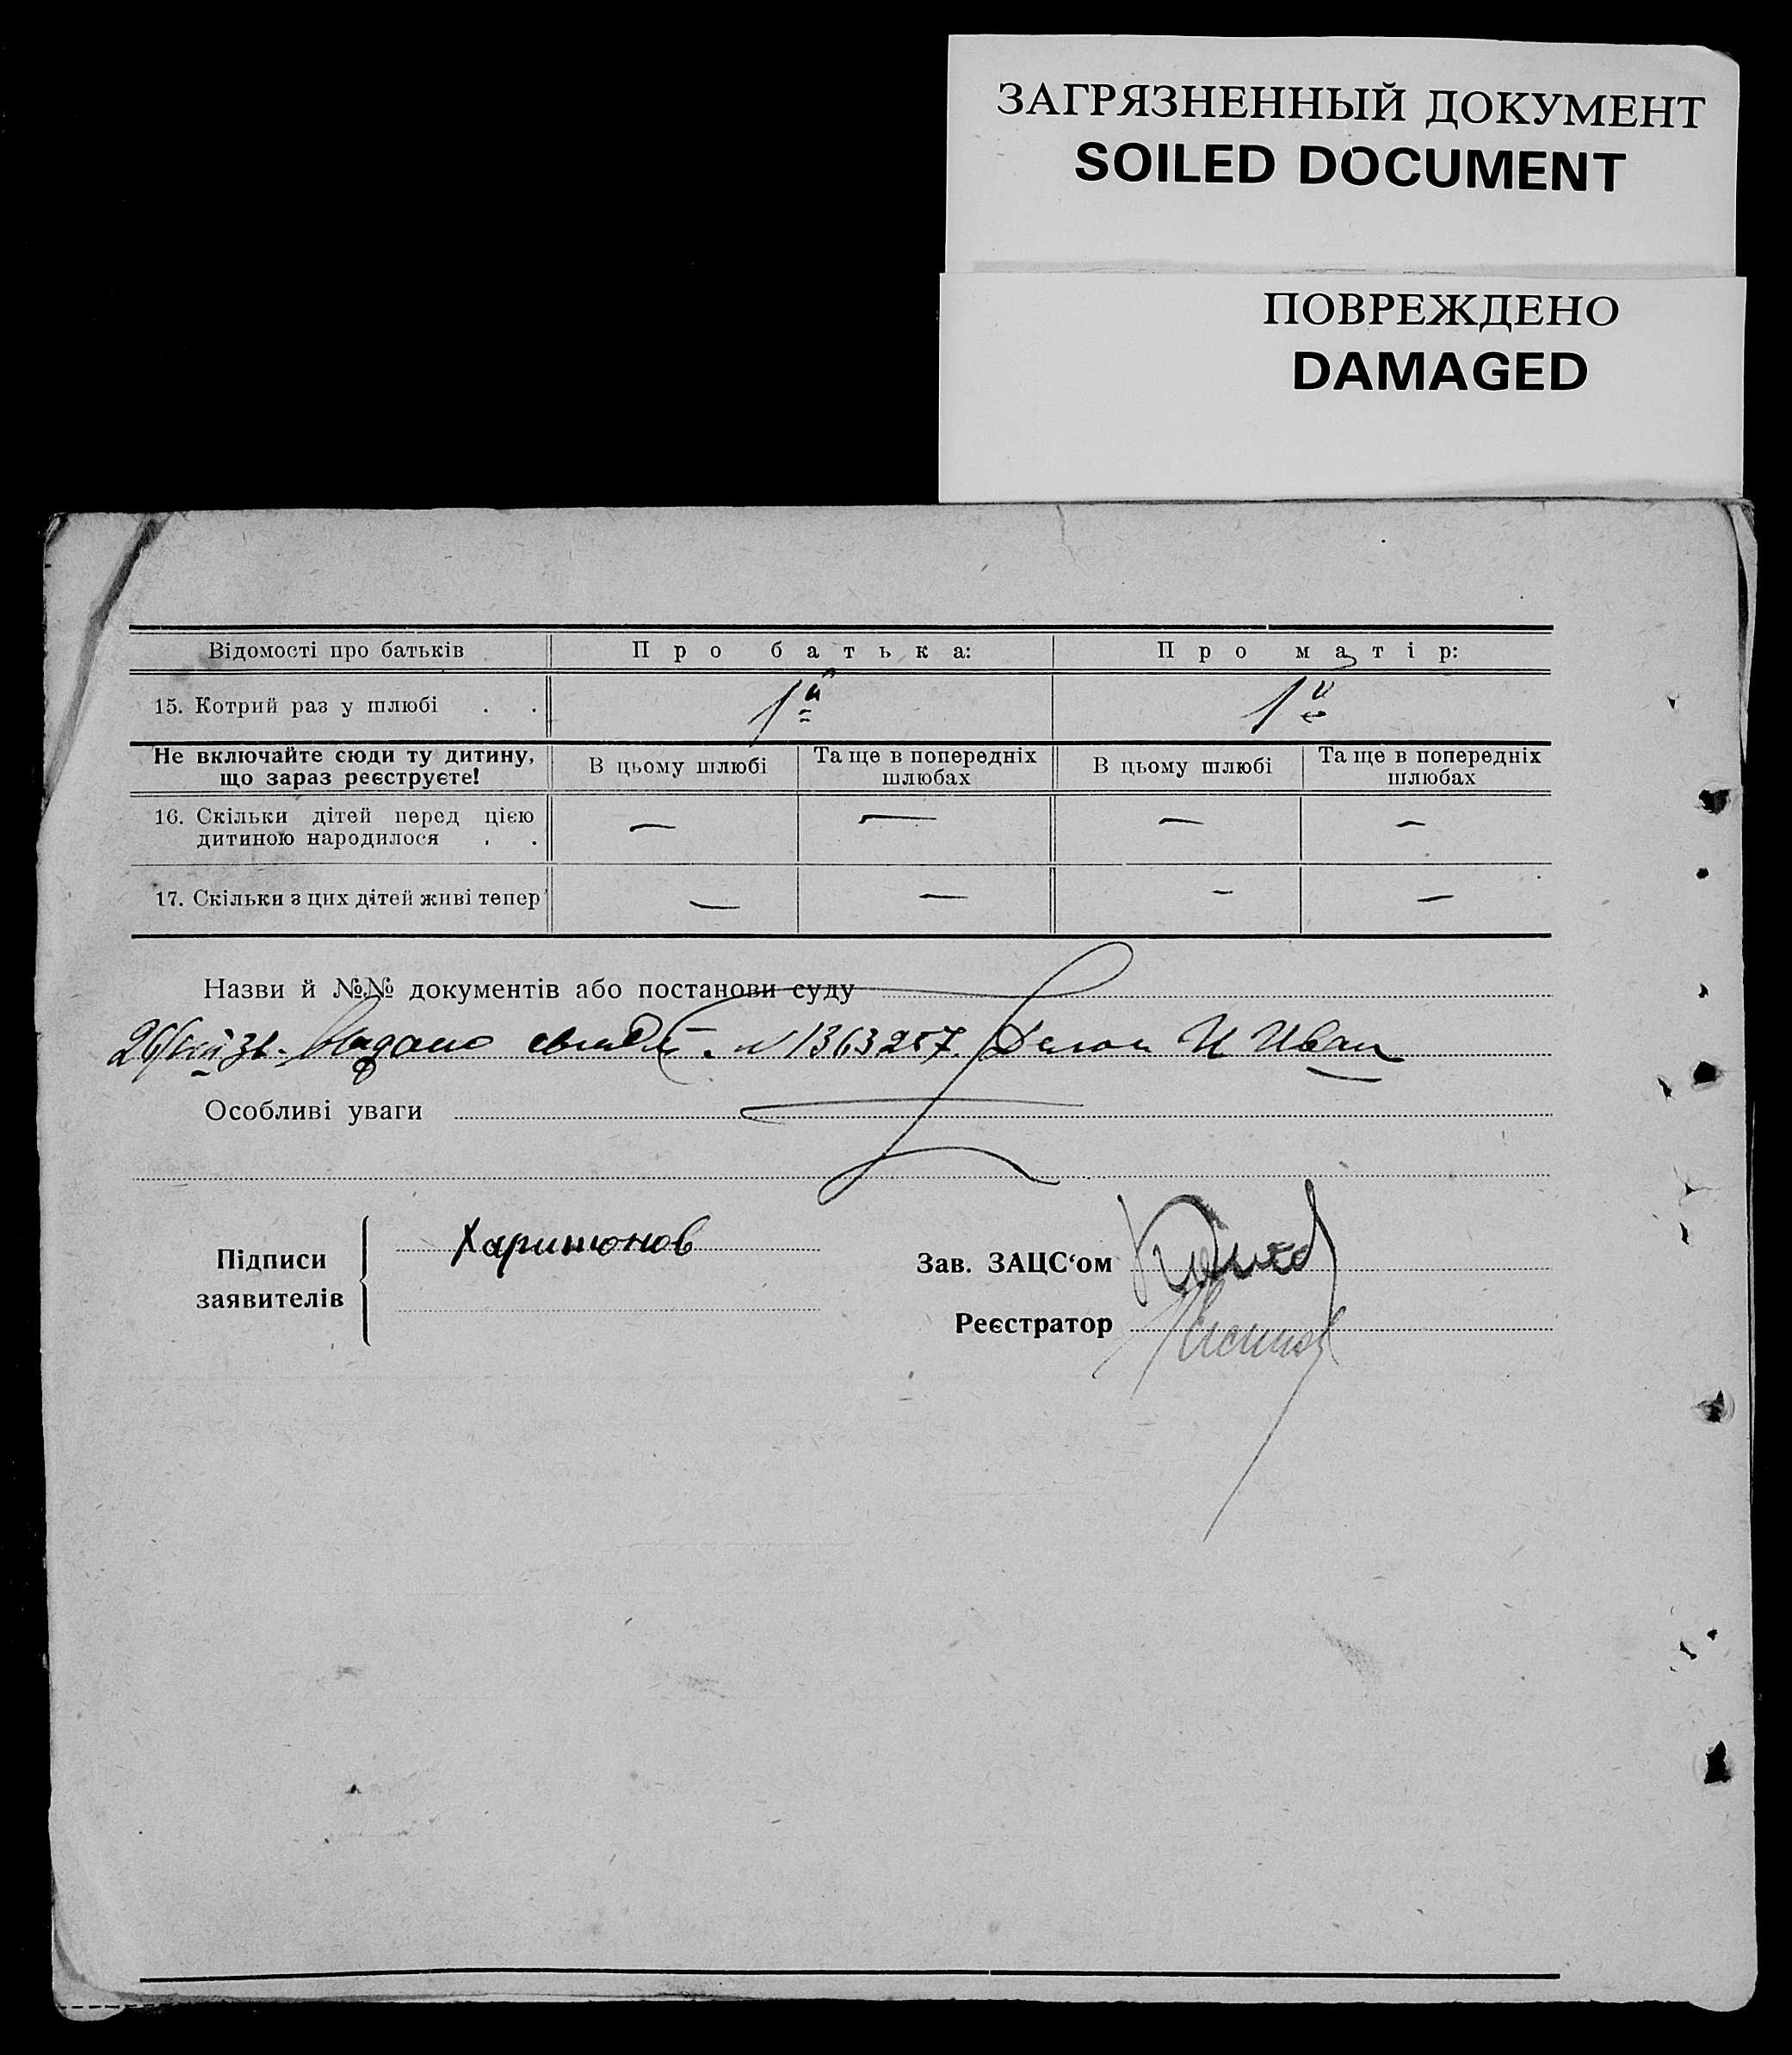 ЗАГРЯЗНЕННЫЙ ДОКУМЕНТ
SOILED DOCUMENT
ПОВРЕЖДЕНО
DAMAGED
Відомості про батьків Про батька: Про матір:
15. Котрий раз у шлюбі . . 1й 1й
Не включайте сюди ту дитину, що зараз реєструєте! В цьому шлюбі Та ще в попередніх шлюбах В цьому шлюбі Та ще в попередніх шлюбах
16. Скільки дітей перед цією дитиною народилося . . — — — —
17. Скільки з цих дітей живі тепер — — — —
Назви й №№ документів або постанови суду
Видано свид. N 1363257.
Особливі уваги
Підписи заявителів Харитонов
Зав. ЗАЦС'ом
Реєстратор